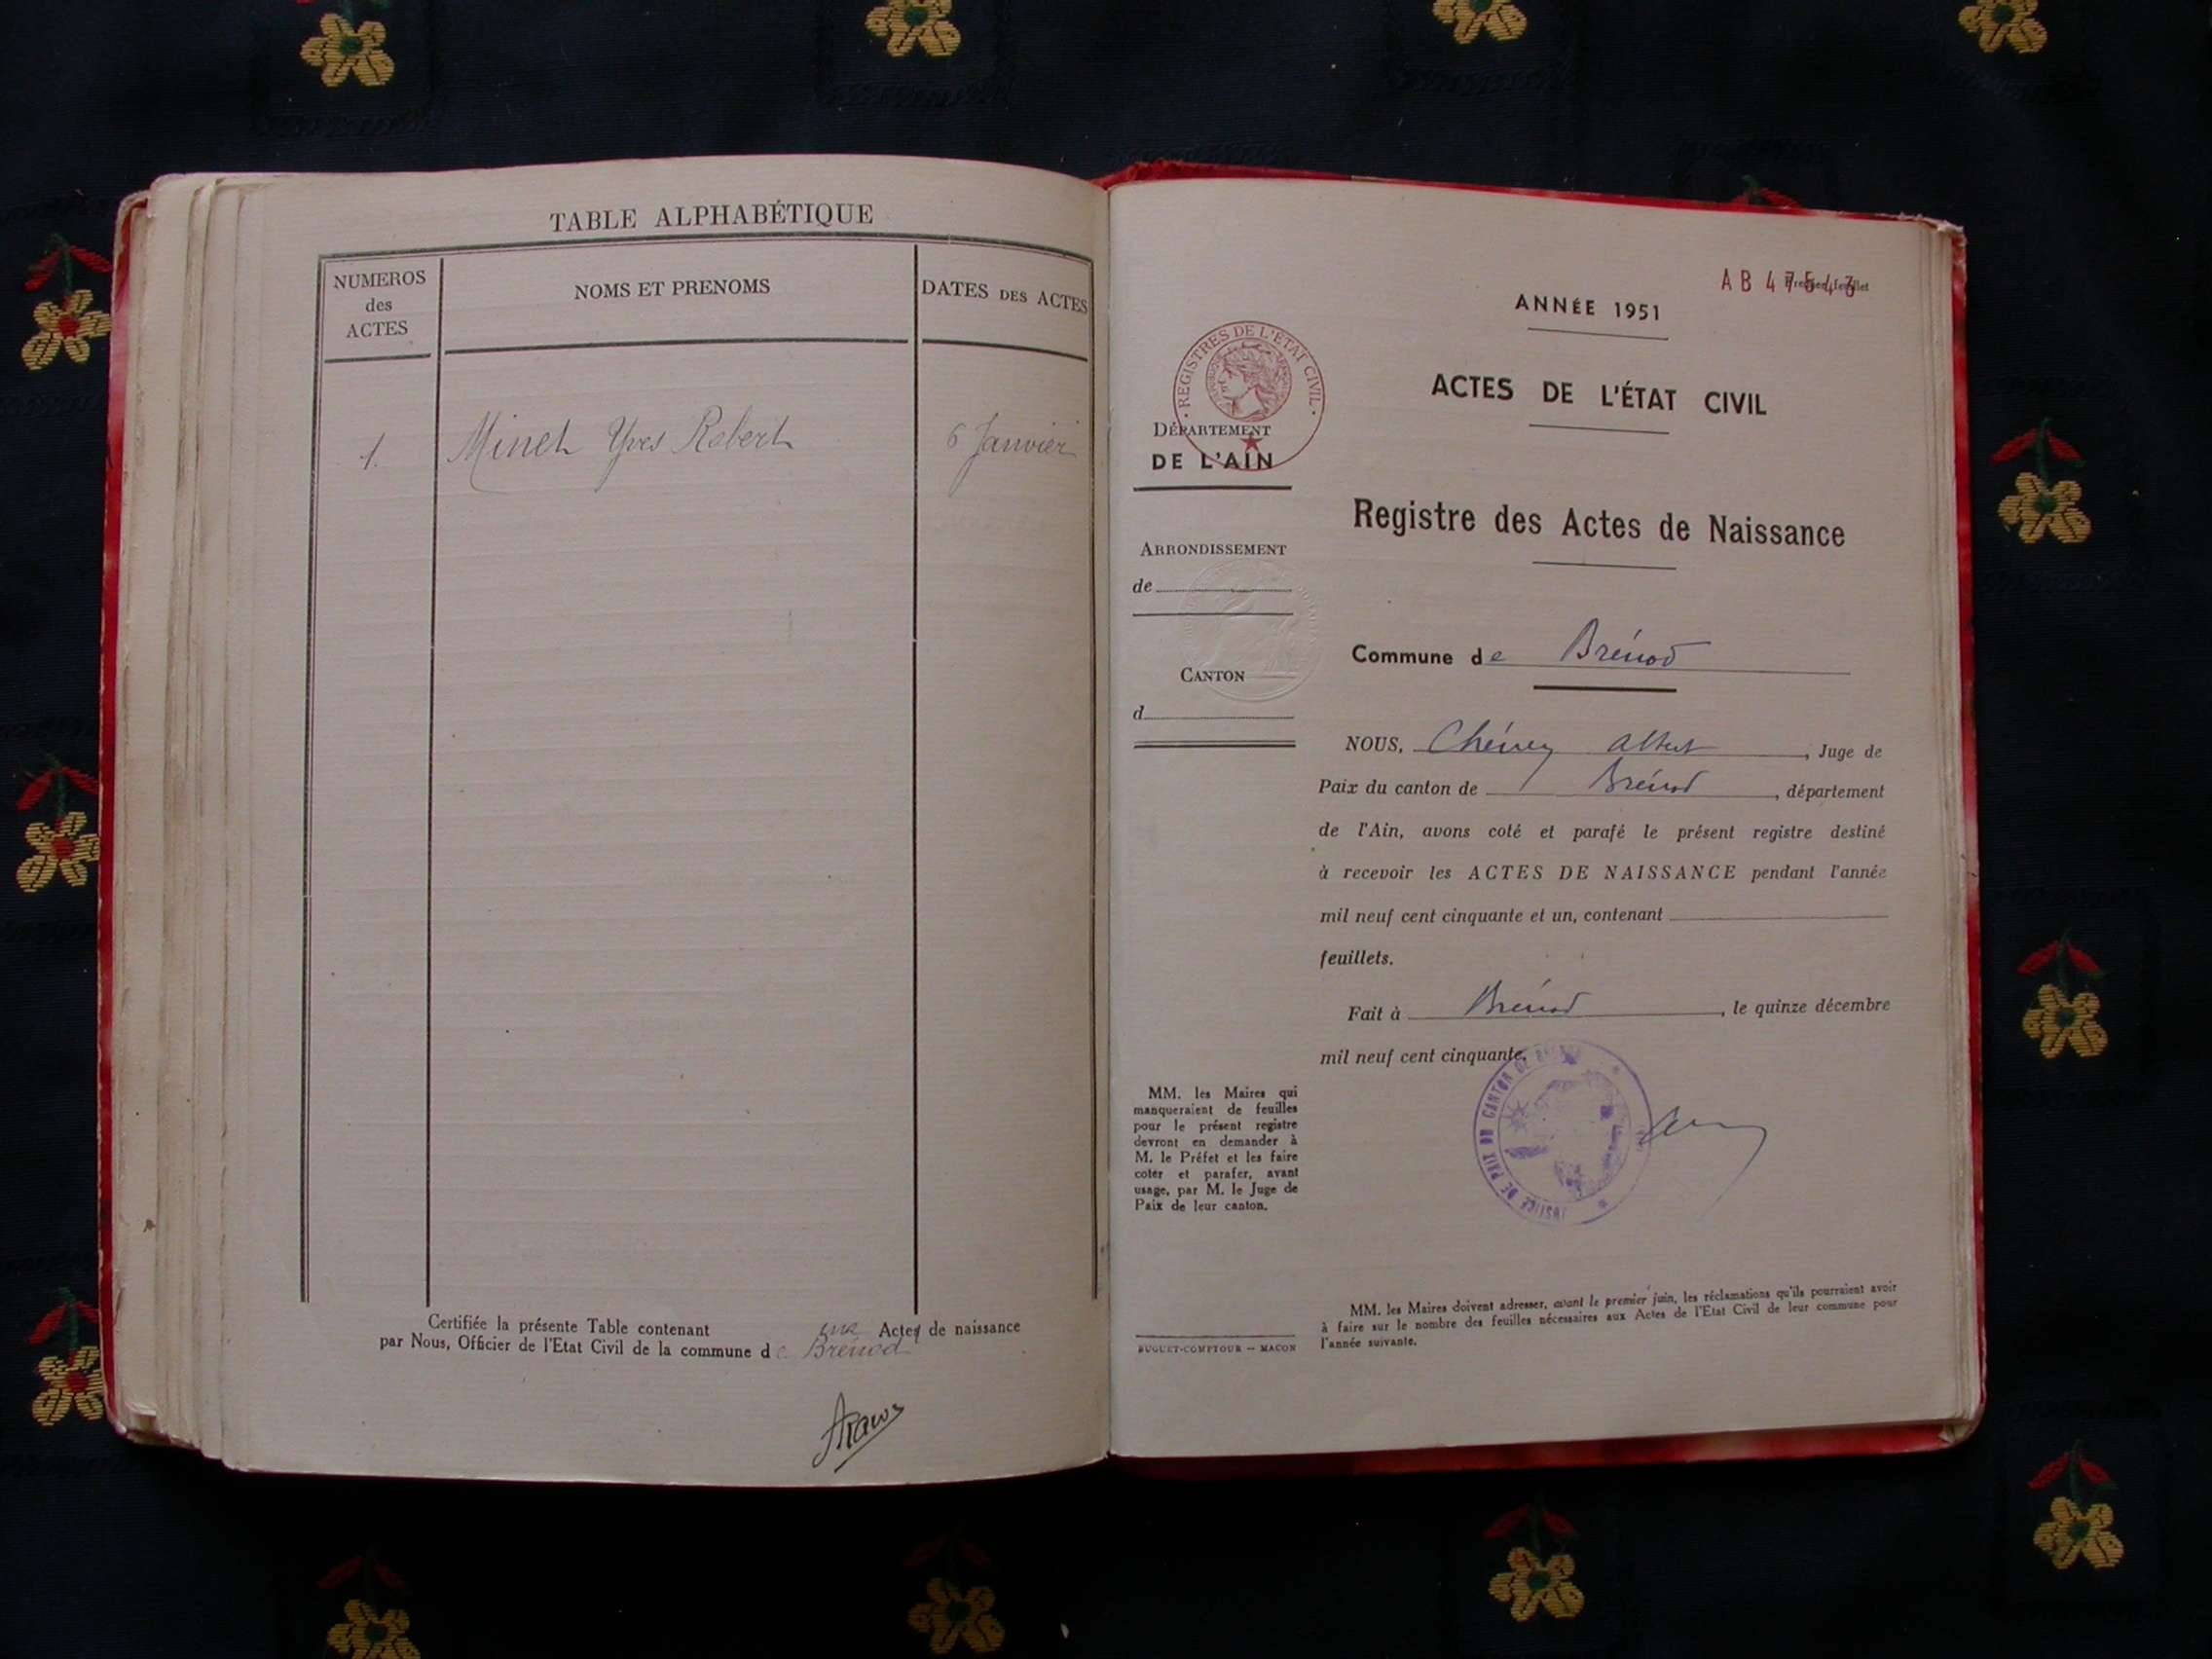 TABLE ALPHABÉTIQUE
NUMEROS
des
ACTES
NOMS ET PRENOMS
DATES DES ACTES
1. Minet Yves Robert 6 Janvier
Certifiée la présente Table contenant une Actes de naissance
par Nous, Officier de l'Etat Civil de la commune de Brénod
AB 47543
ANNÉE 1951
REGISTRES DE L'ETAT CIVIL
ACTES DE L'ÉTAT CIVIL
DÉPARTEMENT
DE L'AIN
Registre des Actes de Naissance
ARRONDISSEMENT
de
Commune de Brénod
CANTON
d
NOUS, Albert , Juge de
Paix du canton de Brénod , département
de l'Ain, avons coté et parafé le présent registre destiné
à recevoir les ACTES DE NAISSANCE pendant l'année
mil neuf cent cinquante et un, contenant
feuillets.
Fait à Brénod , le quinze décembre
mil neuf cent cinquante.
JUSTICE DE PAIX DU CANTON DE
MM. les Maires qui
manqueraient de feuilles
pour le présent registre
devront en demander à
M. le Préfet et les faire
coter et parafer, avant
usage, par M. le Juge de
Paix de leur canton.
MM. les Maires doivent adresser, avant le premier juin, les réclamations qu'ils pourraient avoir
à faire sur le nombre des feuilles nécessaires aux Actes de l'Etat Civil de leur commune pour
l'année suivante.
BUGUET-COMPTOUR — MACON